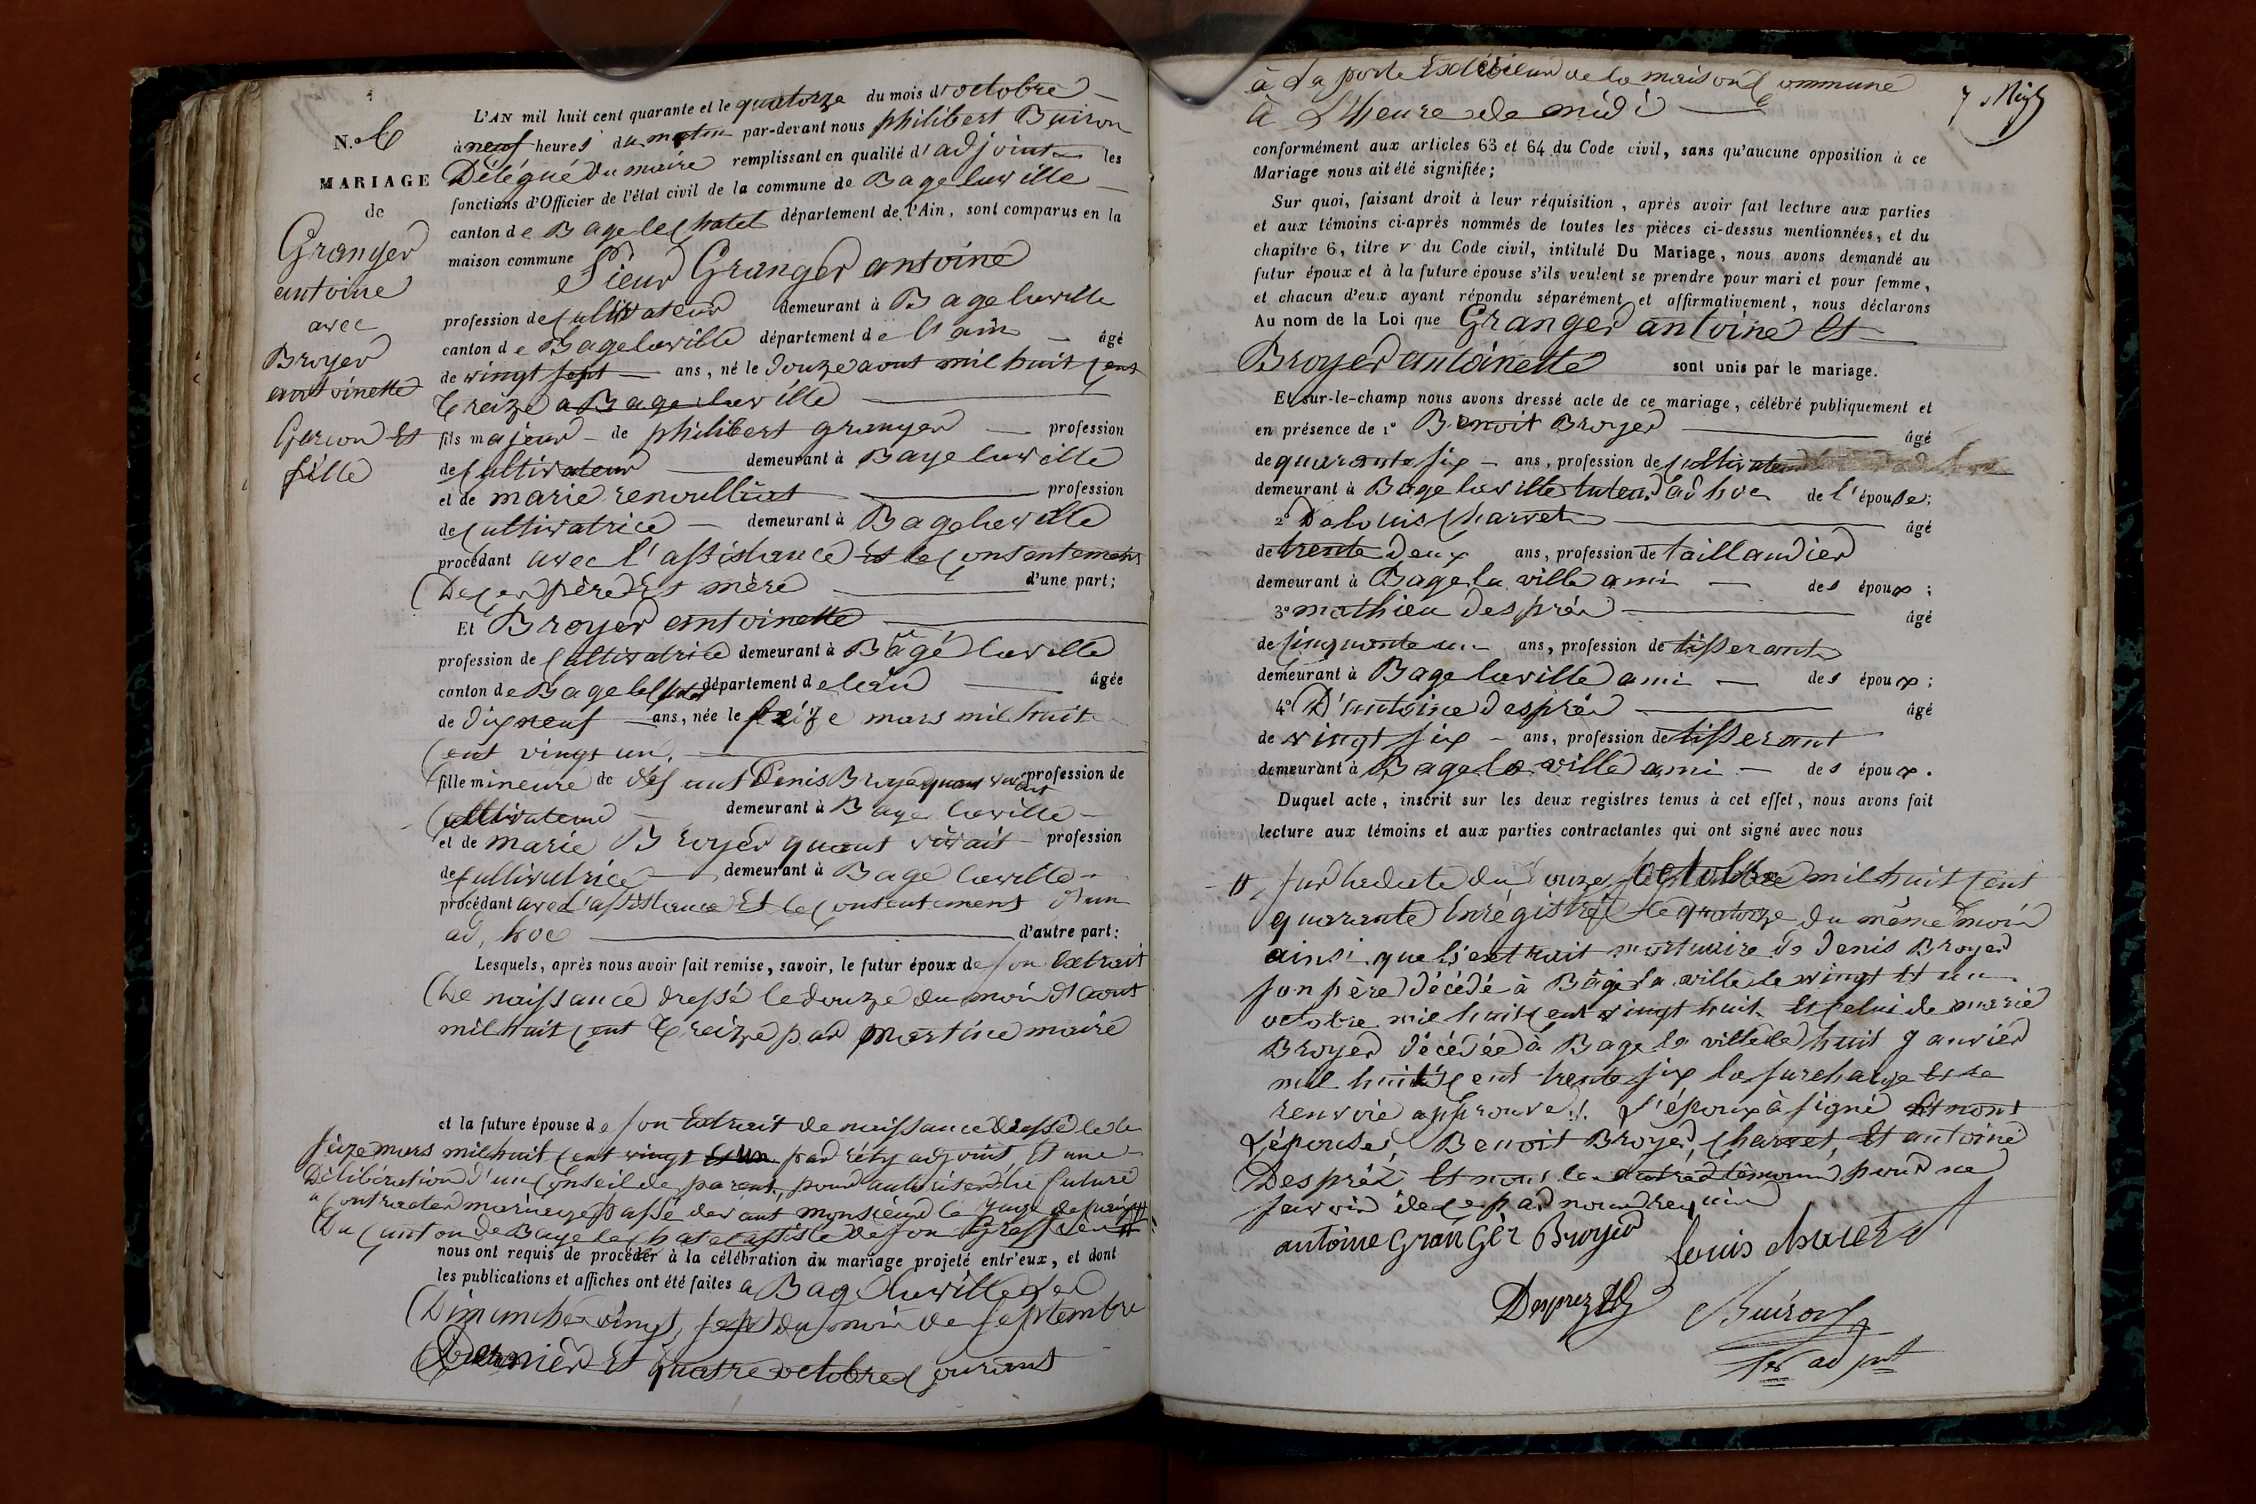 N.º 6
MARIAGE
de
Granger
antoine
avec
Broyer
antoinette
Garcon Et
fille
L'AN mil huit cent quarante et le quatorze du mois d'octobre
à neuf heures du matin par-devant nous philibert Buiron
Délégué du maire remplissant en qualité d'adjoint les
fonctions d'Officier de l'état civil de la commune de Bage laville
canton de Bage le Chatel département de l'Ain, sont comparus en la
maison commune Sieur Granger antoine
profession de Cultivateur demeurant à Bage laville
canton de Bage laville département de l'ain âgé
de vingt sept ans, né le douze aout mil huit Cent
treize a Bage laville
fils majeur de philibert granger profession
de Cultivateur demeurant à Bage laville
et de marie renoulliat profession
de Cultivatrice demeurant à Bage laville
procédant avec l'assistance et le Consentement
De Ces père Et mère d'une part;
Et Broyer antoinette
profession de Cultivatrice demeurant à Bagé laville
canton de Bage le Chatel département de lain âgée
de dix neuf ans, née le seize mars mil huit
Cent vingt un
fille mineure de defunt Denis Broyer quant vivait profession de
Cultivateur demeurant à Bage laville
et de marie Broyer quant vivait profession
de Cultivatrice demeurant à Bage laville
procédant avec l'assistance Et le Consentement d'un
ad, hoc d'autre part:
Lesquels, après nous avoir fait remise, savoir, le futur époux de son Extrait
De naissance dressé le douze du moi d'aout
mil huit Cent treize par martine maire
et la future épouse de son Extrait de naissance dressé le
seize mars mil huit Cent vingt un par réty adjoint Et une
Délibération d'un Conseil de parent, pour autoriser la future
a Contracter mariage passé devant monsieur le juge de paix
du Canton de Bage le Chatel assisté de son Greffier #
nous ont requis de procéder à la célébration du mariage projeté entr'eux, et dont
les publications et affiches ont été faites a Bage laville les
Dimanche vingt sept du moi de septembre
Dernier Et quatre octobre Courant
à La porte Extérieur de la maison Commune
à L'Heure de midi
conformément aux articles 63 et 64 du Code civil, sans qu'aucune opposition à ce
Mariage nous ait été signifiée;
Sur quoi, faisant droit à leur réquisition, après avoir fait lecture aux parties
et aux témoins ci-après nommés de toutes les pièces ci-dessus mentionnées, et du
chapitre 6, titre v du Code civil, intitulé Du Mariage, nous avons demandé au
futur époux et à la future épouse s'ils veulent se prendre pour mari et pour femme,
et chacun d'eux ayant répondu séparément et affirmativement, nous déclarons
Au nom de la Loi que Granger antoine Et
Broyer antoinette sont unis par le mariage.
Et sur-le-champ nous avons dressé acte de ce mariage, célébré publiquement et
en présence de 1º Benoit Broyer âgé
de quarante six ans, profession de Cultivateur
demeurant à Bage laville tuteur ad hoc de l'épouse;
2º De louis Charvet âgé
de trente deux ans, profession de taillandier
demeurant à Bage la ville ami des époux;
3º mathieu Despréz âgé
de Cinquante un ans, profession de tisserant
demeurant à Bage laville ami des époux;
4º D'antoine Despréz âgé
de vingt six ans, profession de tisserant
demeurant à Bage la ville ami des époux.
Duquel acte, inscrit sur les deux registres tenus à cet effet, nous avons fait
lecture aux témoins et aux parties contractantes qui ont signé avec nous
# sur la date du douze octobre mil huit Cent
quarante Enrégistré Le quatorze du même moi
ainsi que l'extrait mortuaire de Denis Broyer
son père décédé à Bâgé la ville le vingt Et un
octobre mil huit Cent vingt huit Et Celui de marie
Broyer décédée à Bage la ville le huit janvier
mil huit Cent trente six la surcharge Et le
renvoie approuvé. L'époux à signé Et nont
L'épouse, Benoit Broyer, Charvet, Et antoine
Despréz Et nont les autres témoins pour ne
savoir de ce par nous requis
antoine GranGèr Broyer louis charvet
Desprez Buiron
1er adjoint